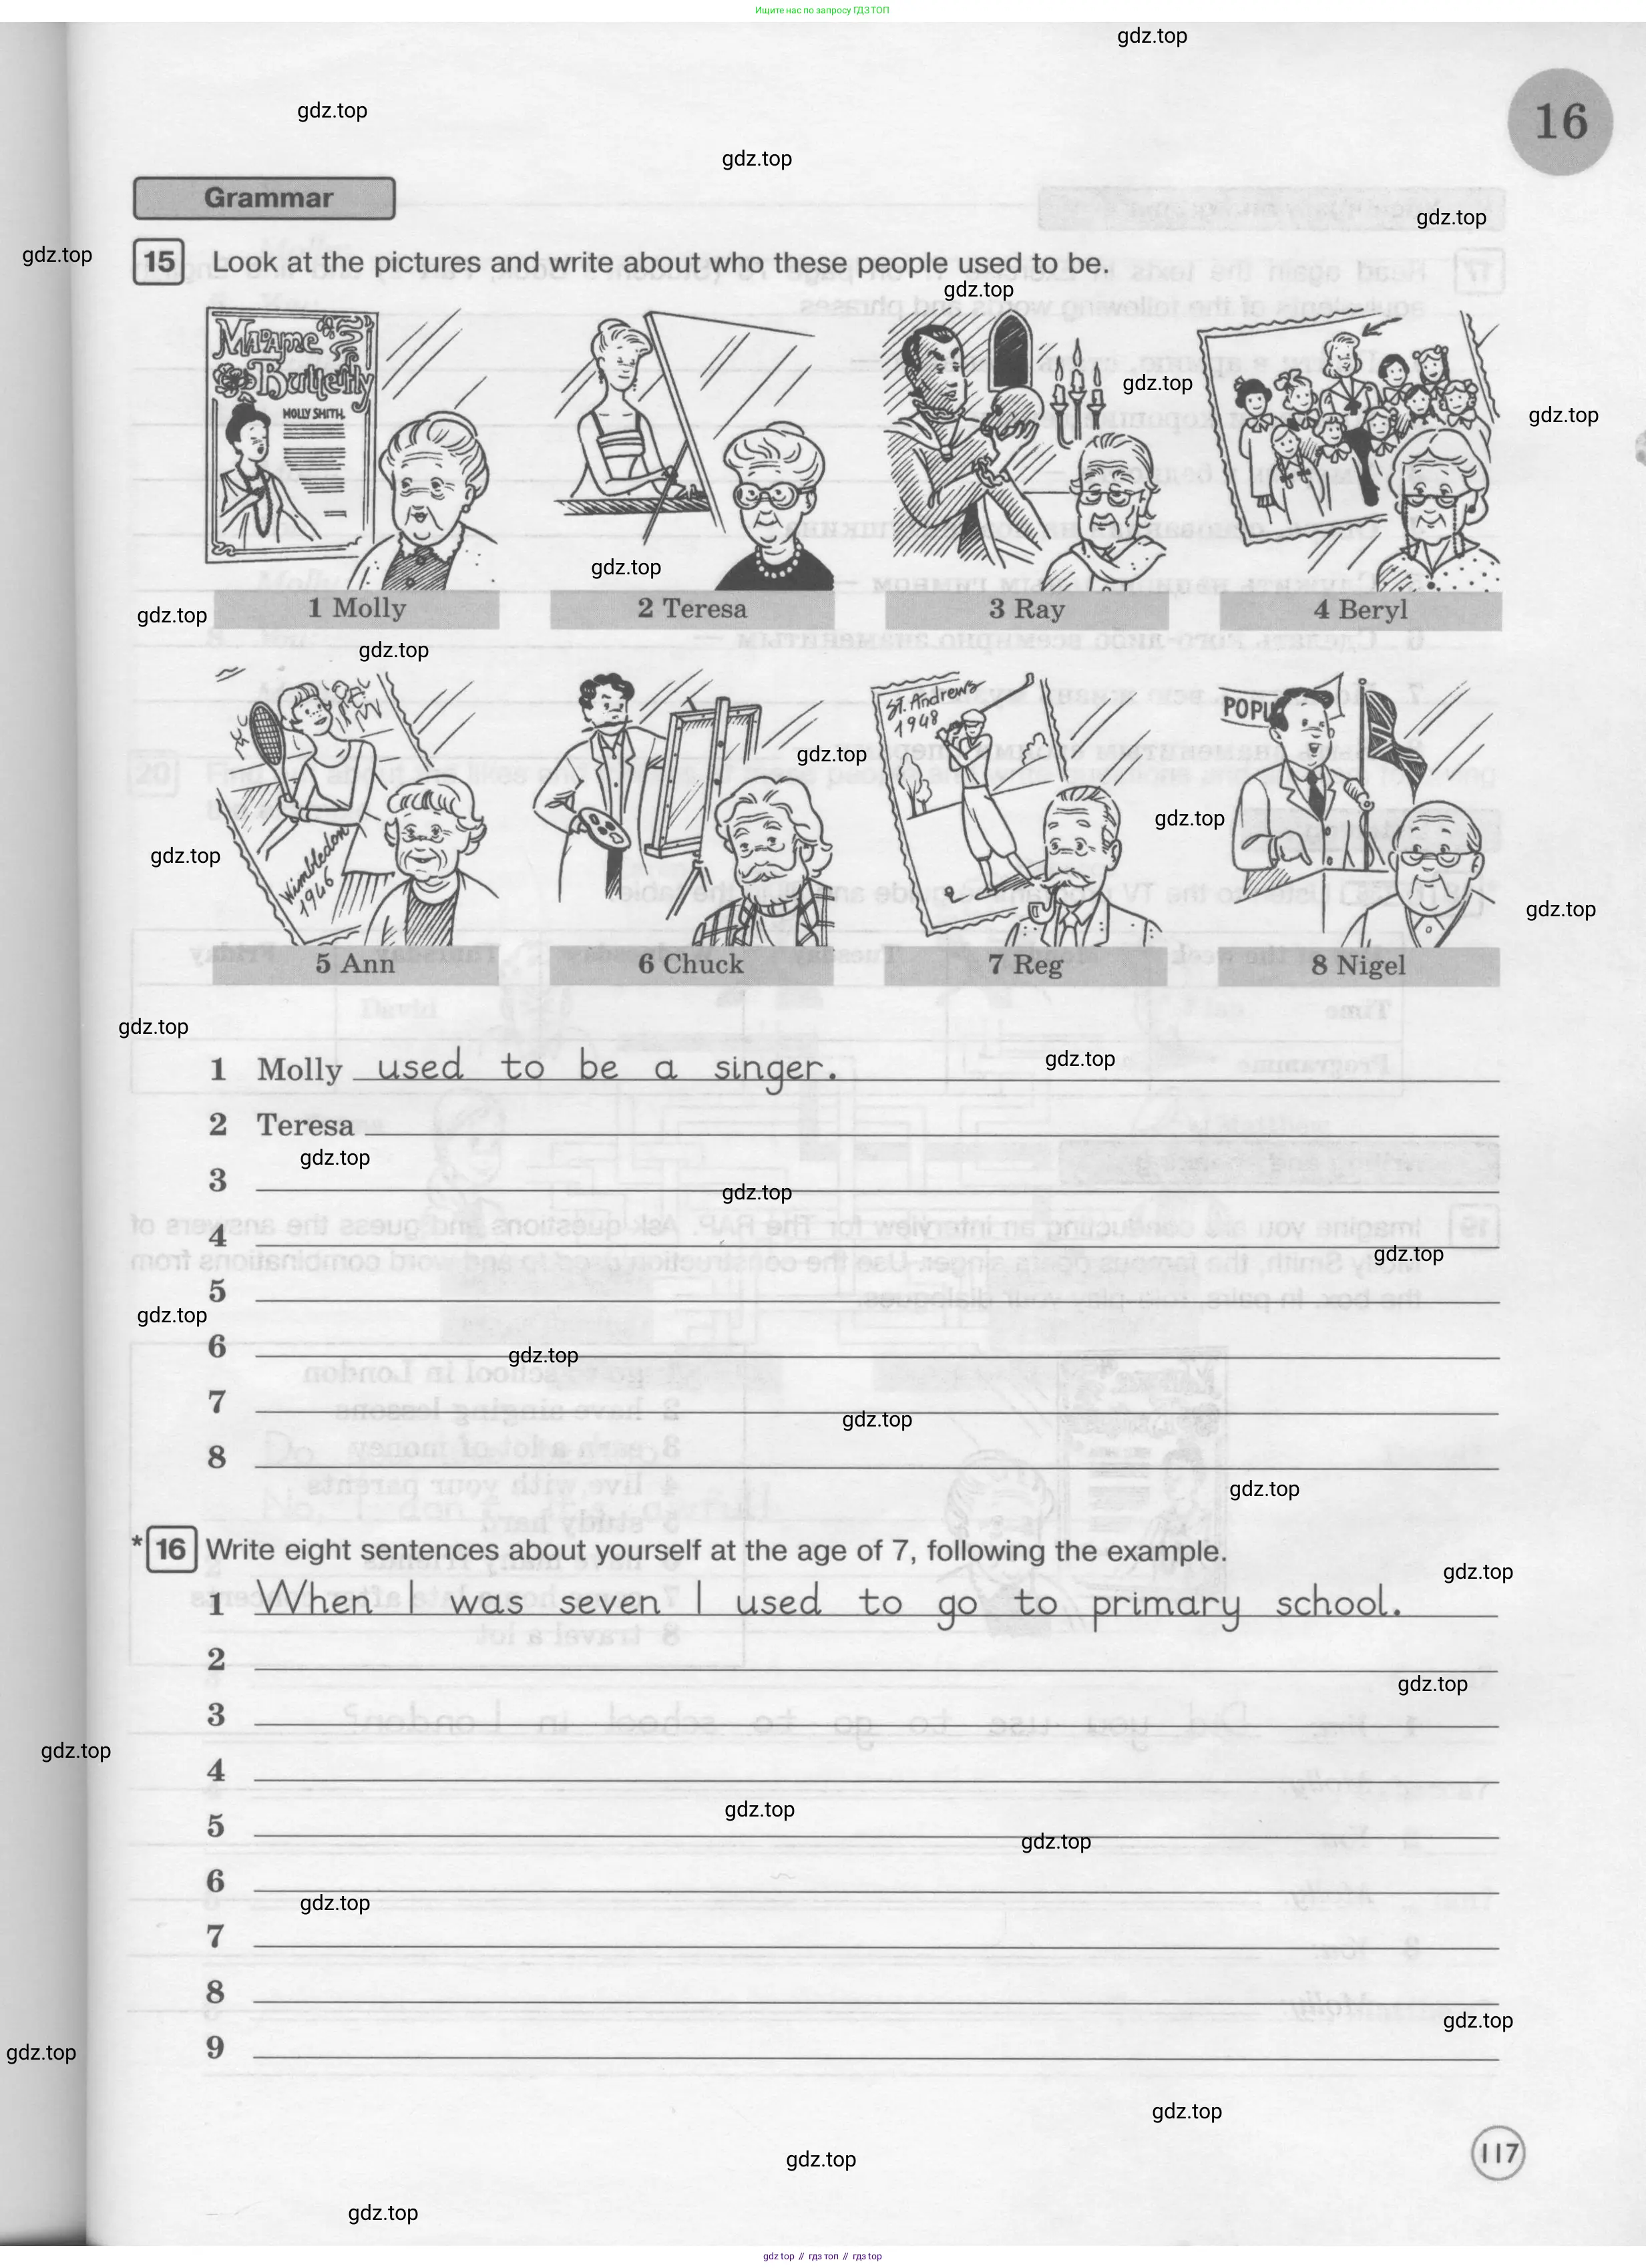 Ищите нас по запросу ГДЗ ТОП
gdz.top
gdz.top
16
gdz.top
Grammar
gdz.top
gdz.top
15 Look at the pictures and write about who these people used to be.
gdz.top
Madame
Butterfly
MOLLY SMITH
gdz.top
gdz.top
gdz.top
1 Molly
2 Teresa
3 Ray
4 Beryl
gdz.top
gdz.top
St. Andrews
1948
POPU
gdz.top
gdz.top
Wimbledon
1946
gdz.top
gdz.top
5 Ann
6 Chuck
7 Reg
8 Nigel
gdz.top
1 Molly used to be a singer.
gdz.top
2 Teresa
gdz.top
3
gdz.top
4
gdz.top
5
gdz.top
6
gdz.top
7
gdz.top
8
gdz.top
* 16 Write eight sentences about yourself at the age of 7, following the example.
gdz.top
1 When I was seven I used to go to primary school.
2
gdz.top
3
gdz.top
4
gdz.top
5
gdz.top
6
gdz.top
7
8
gdz.top
9
gdz.top
gdz.top
117
gdz.top
gdz.top
gdz top // гдз топ // гдз top